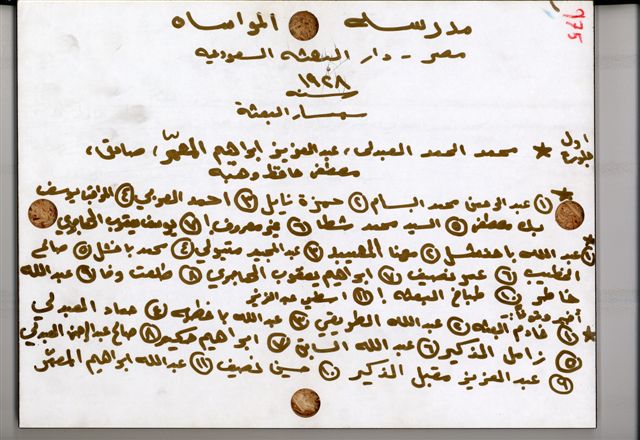 ٩٢٥
مدرسه المواساه
مصر - دار البعثه السعوديه
١٩٢٨
سنه
البعثة
اول جلوساً
محمد الحمد العبدلي، عبدالعزيز ابراهيم المعمّر، صادق،
مصطفى حافظ وهبه
① عبد الرحمن محمد البسام ② حمزة نايل ③ احمد ④ يوسف
مصطفى ⑤ السيد محمد شطا ⑥ غير معروف ⑦ يوسف يعقوب الحجابري
① عبد الله باحنشل ② مهنا المعيبد ③ عبد المجيد متبولي ④ محمد باحنشل ⑤ صالح
الخطيب ⑥ عمر نصيف ⑦ ابراهيم يعقوب الحجابري ⑧ طلعت وفا ⑨ عبد الله
خاطر ⑩ طباخ البعثه ⑪ اسطى عبد العزيز
① خادم البعثه ② عبد الله الطريقي ③ عبد الله ④ حماد العبدلي
⑤ زامل الذكير ⑥ عبد الله السابق ⑦ ابراهيم حكيم ⑧ صالح عبدالرحمن العبدلي
⑨ عبد العزيز مقبل الذكير ⑩ حسين نصيف ⑪ عبد الله ابراهيم المعمّر